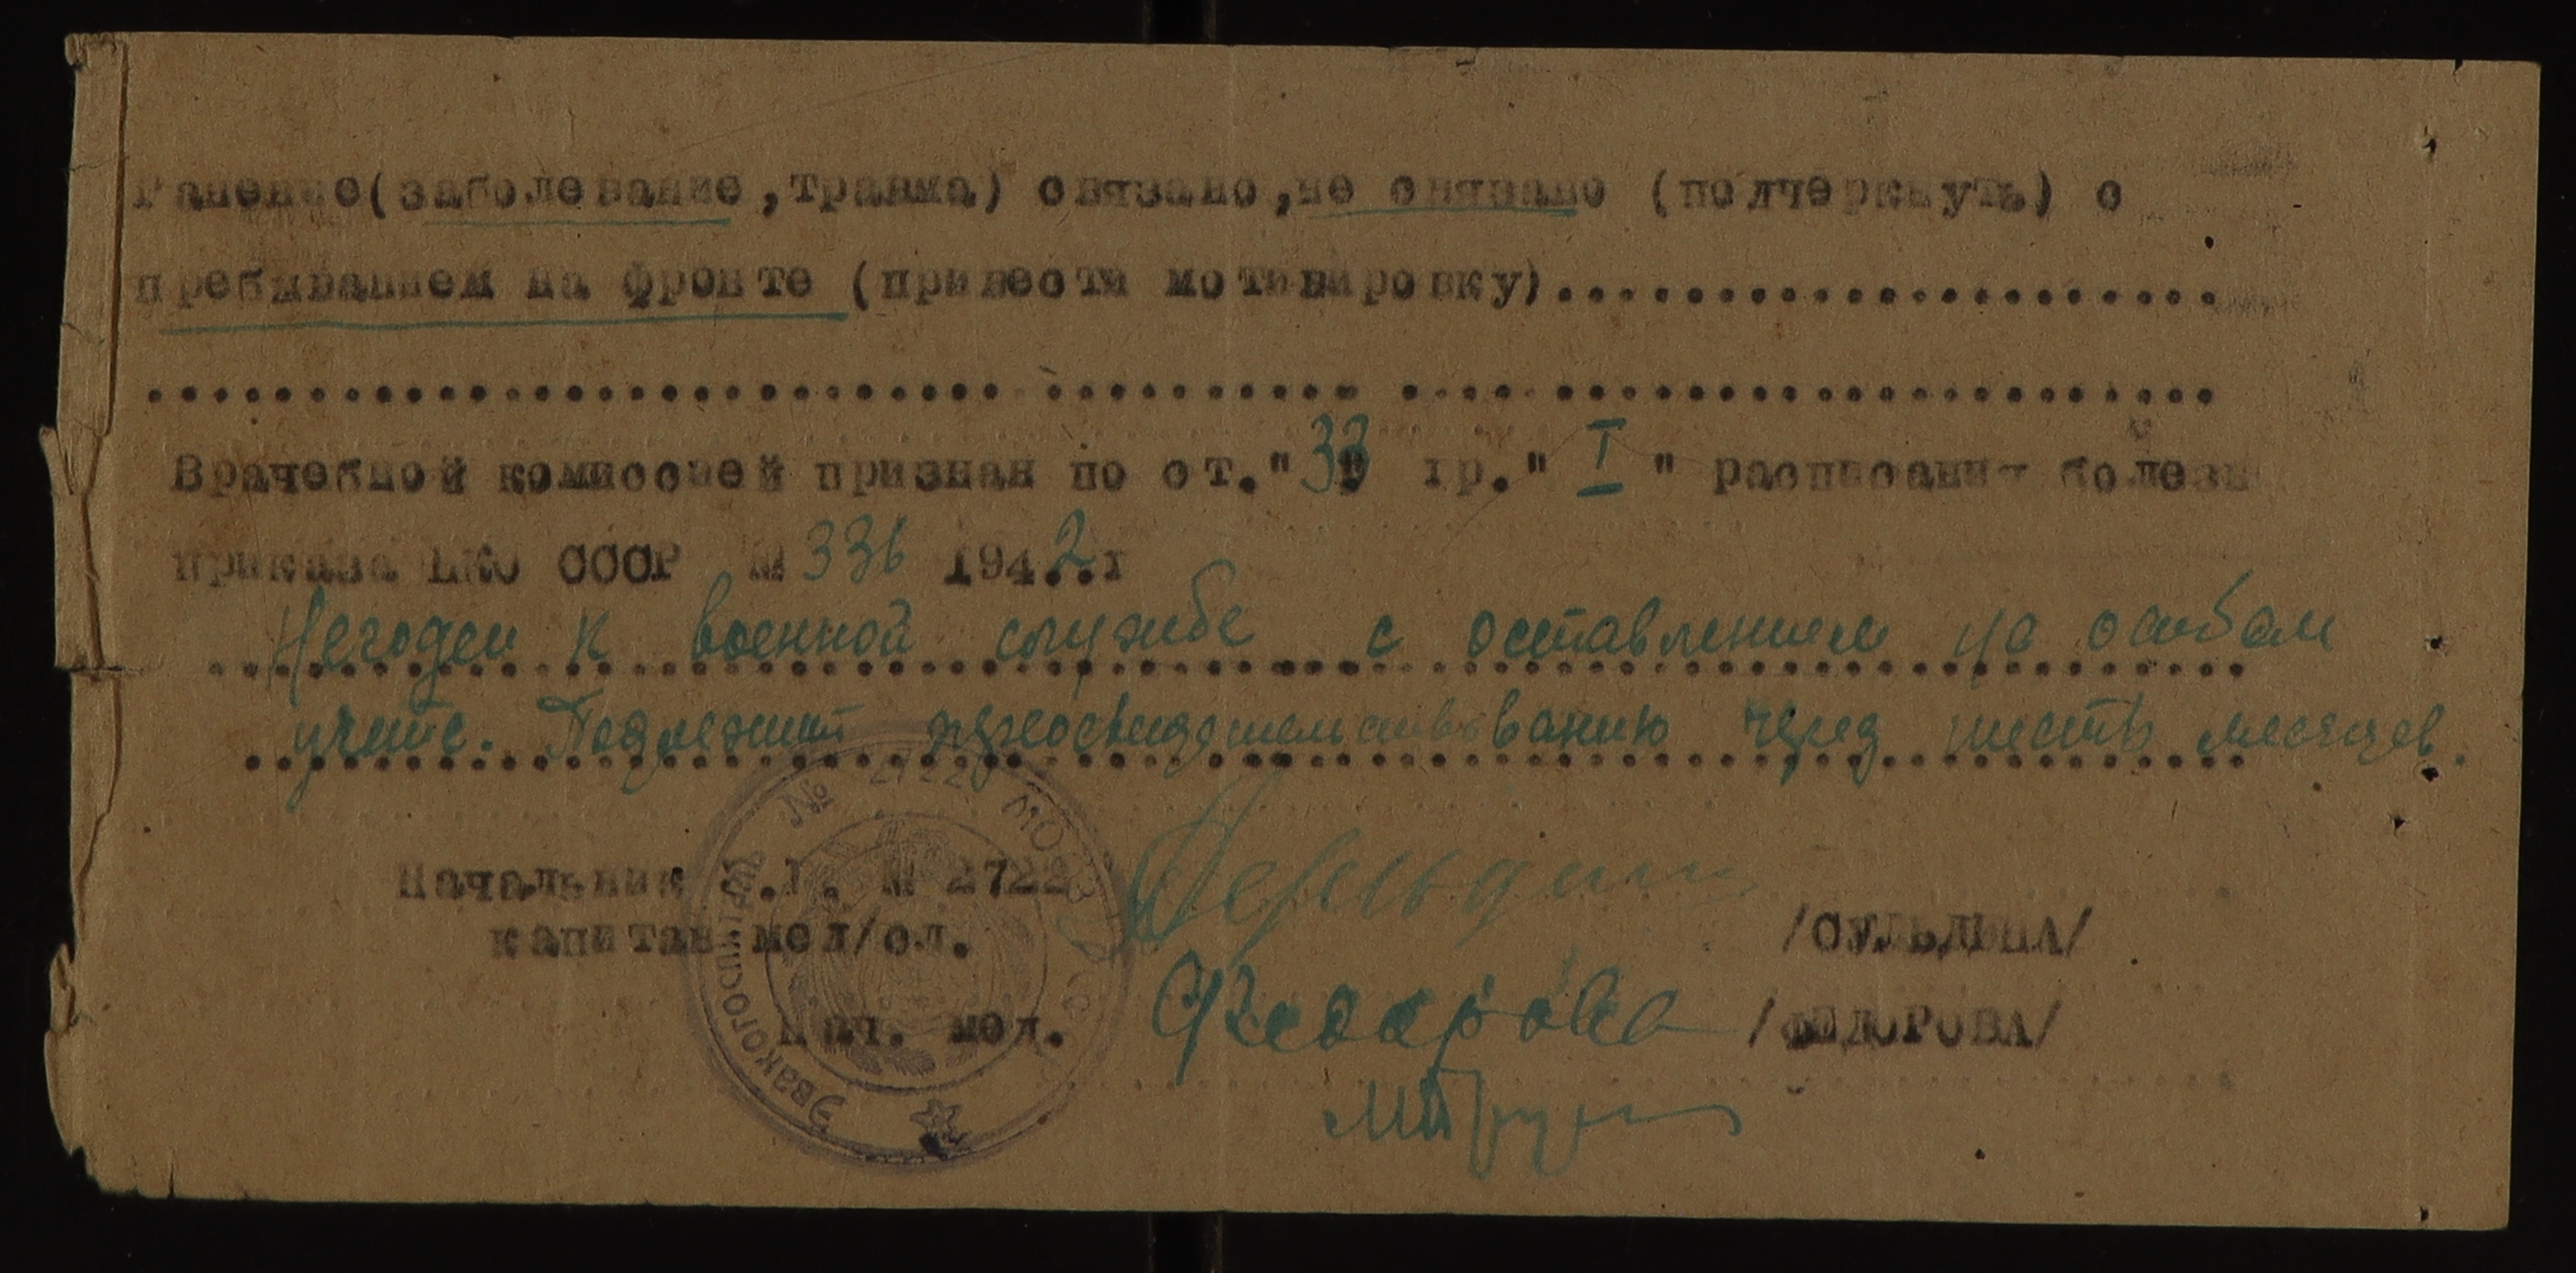 Ранение(заболевание,травма) связано,не связано (подчеркнуть) с
пребыванием на фронте (привести мотивировку)........................
..........................................................
Врачебной комиссией признан по ст."33" гр." I " расписания болезн
приказа НКО СССР № 336 1942..г
Негоден к военной службе с оставлением на особом
учете. Подлежит переосвидетельствованию через шесть месяцев.
Начальник .Г. № 2722
капитан мед/сл. /СУЛЬДИНА/
Нач. мед. Федорова /ФЕДОРОВА/
Эвакогоспиталь № 2722